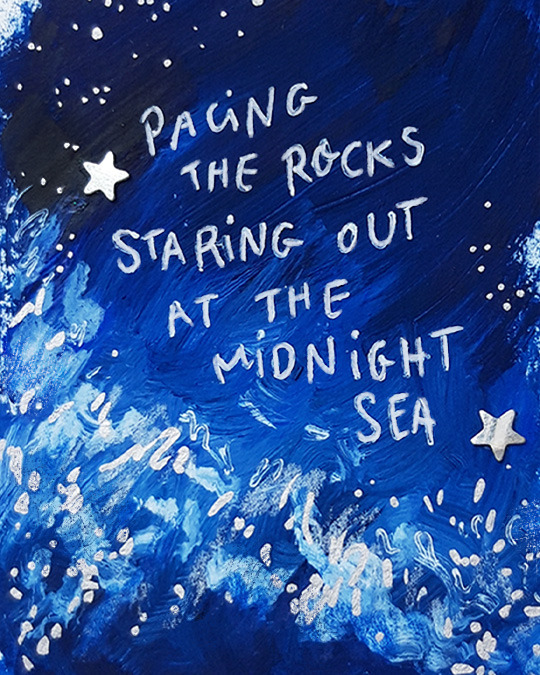 PACING
THE ROCKS
STARING OUT
AT THE
MiDNiGHT
SEA